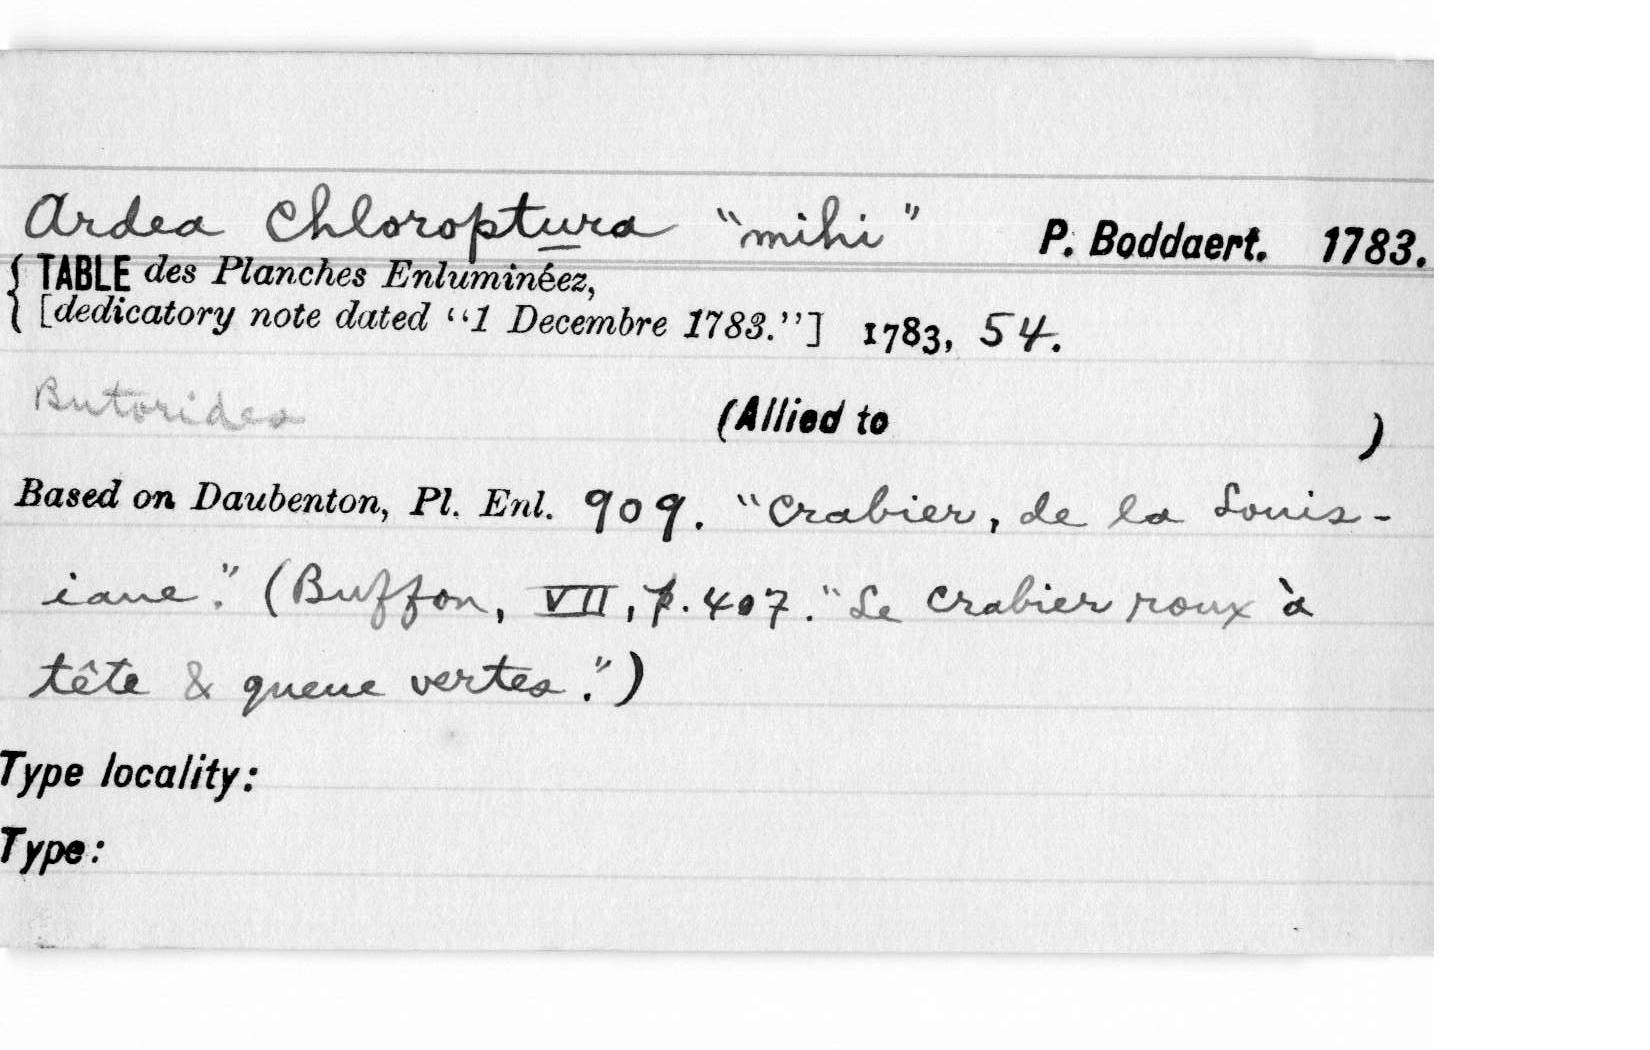 Ardea Chloroptura "mihi" P. Boddaert. 1783.
{ TABLE des Planches Enluminéez,
[dedicatory note dated "1 Decembre 1783."] 1783, 54.
Butorides (Allied to )
Based on Daubenton, Pl. Enl. 909. "Crabier, de la Louis-
iane." (Buffon, VII, p. 407. "Le Crabier roux à
tête & queue vertes.")
Type locality:
Type: